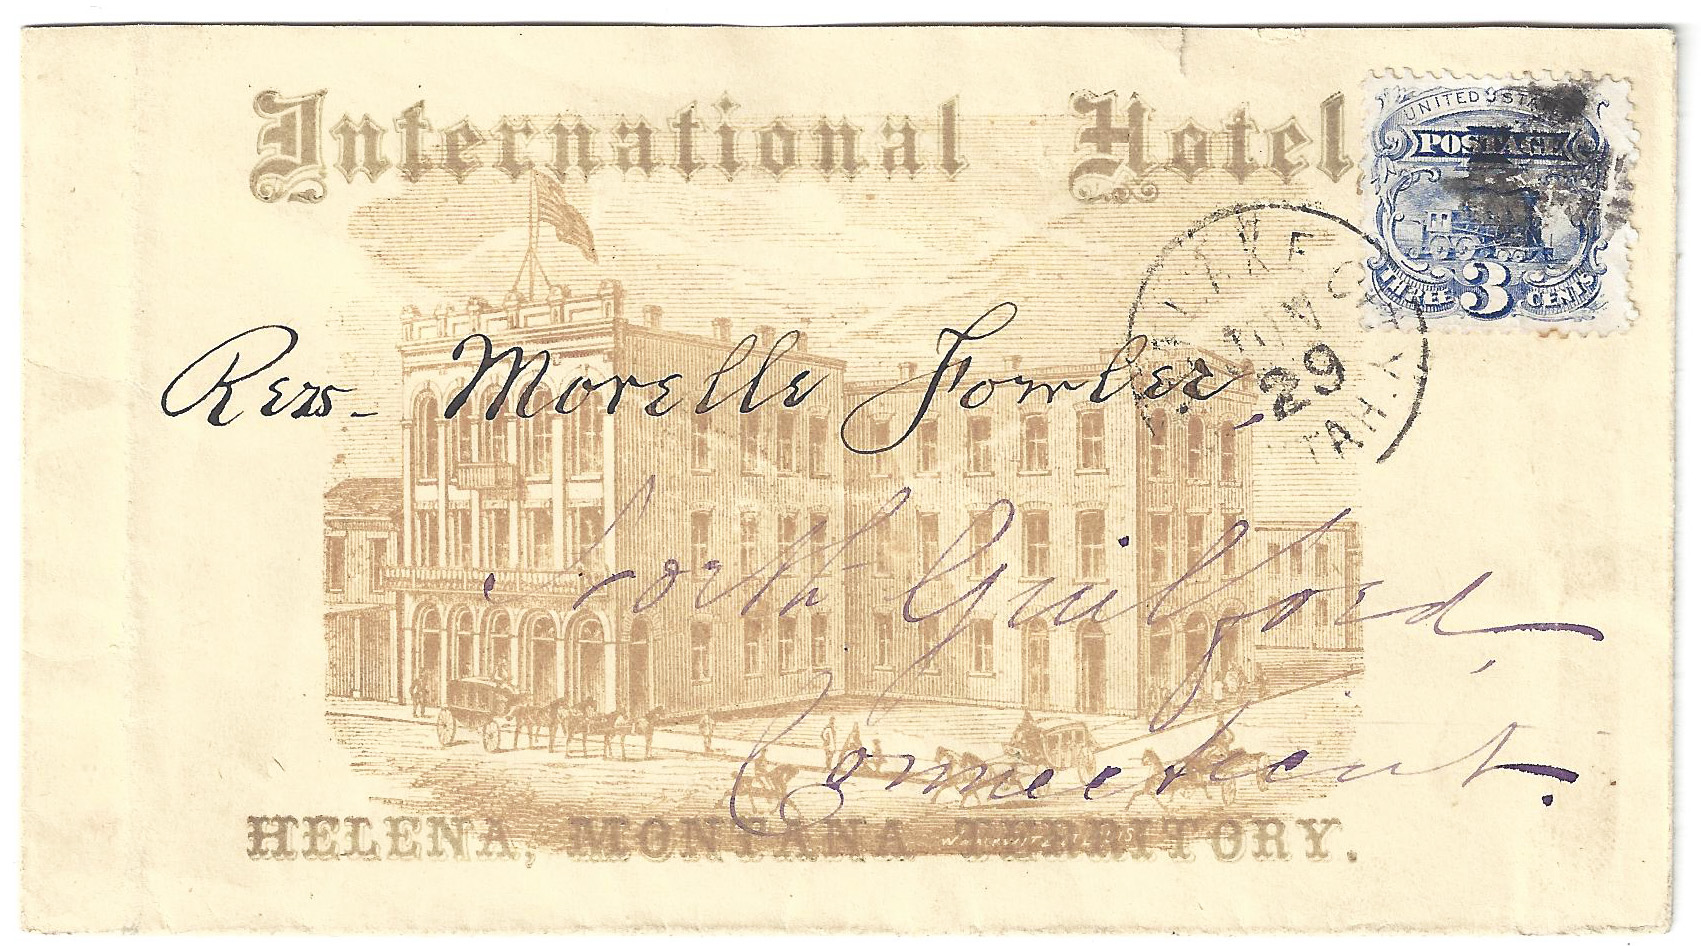 International Hotel,
UNITED STATES
POSTAGE
THREE 3 CENTS
LAKE CITY
29
UTAH.
Rev- Morelle Fowler,
North Guilford,
Connecticut.
HELENA, MONTANA TERRITORY.